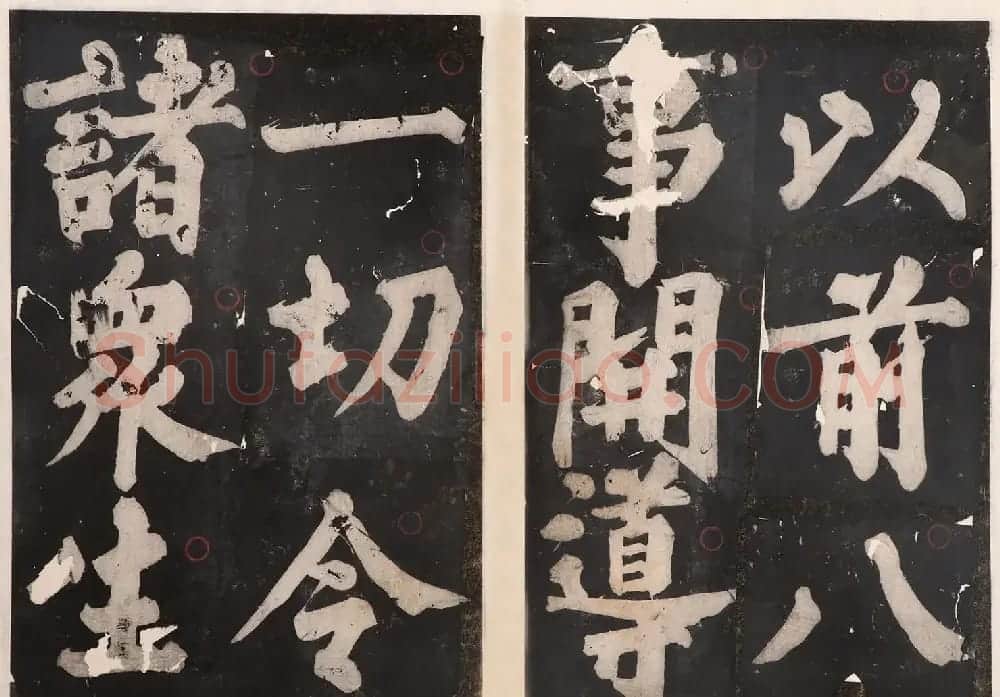 以前八
事開導
一切令
諸衆生
Shufaziliao.COM